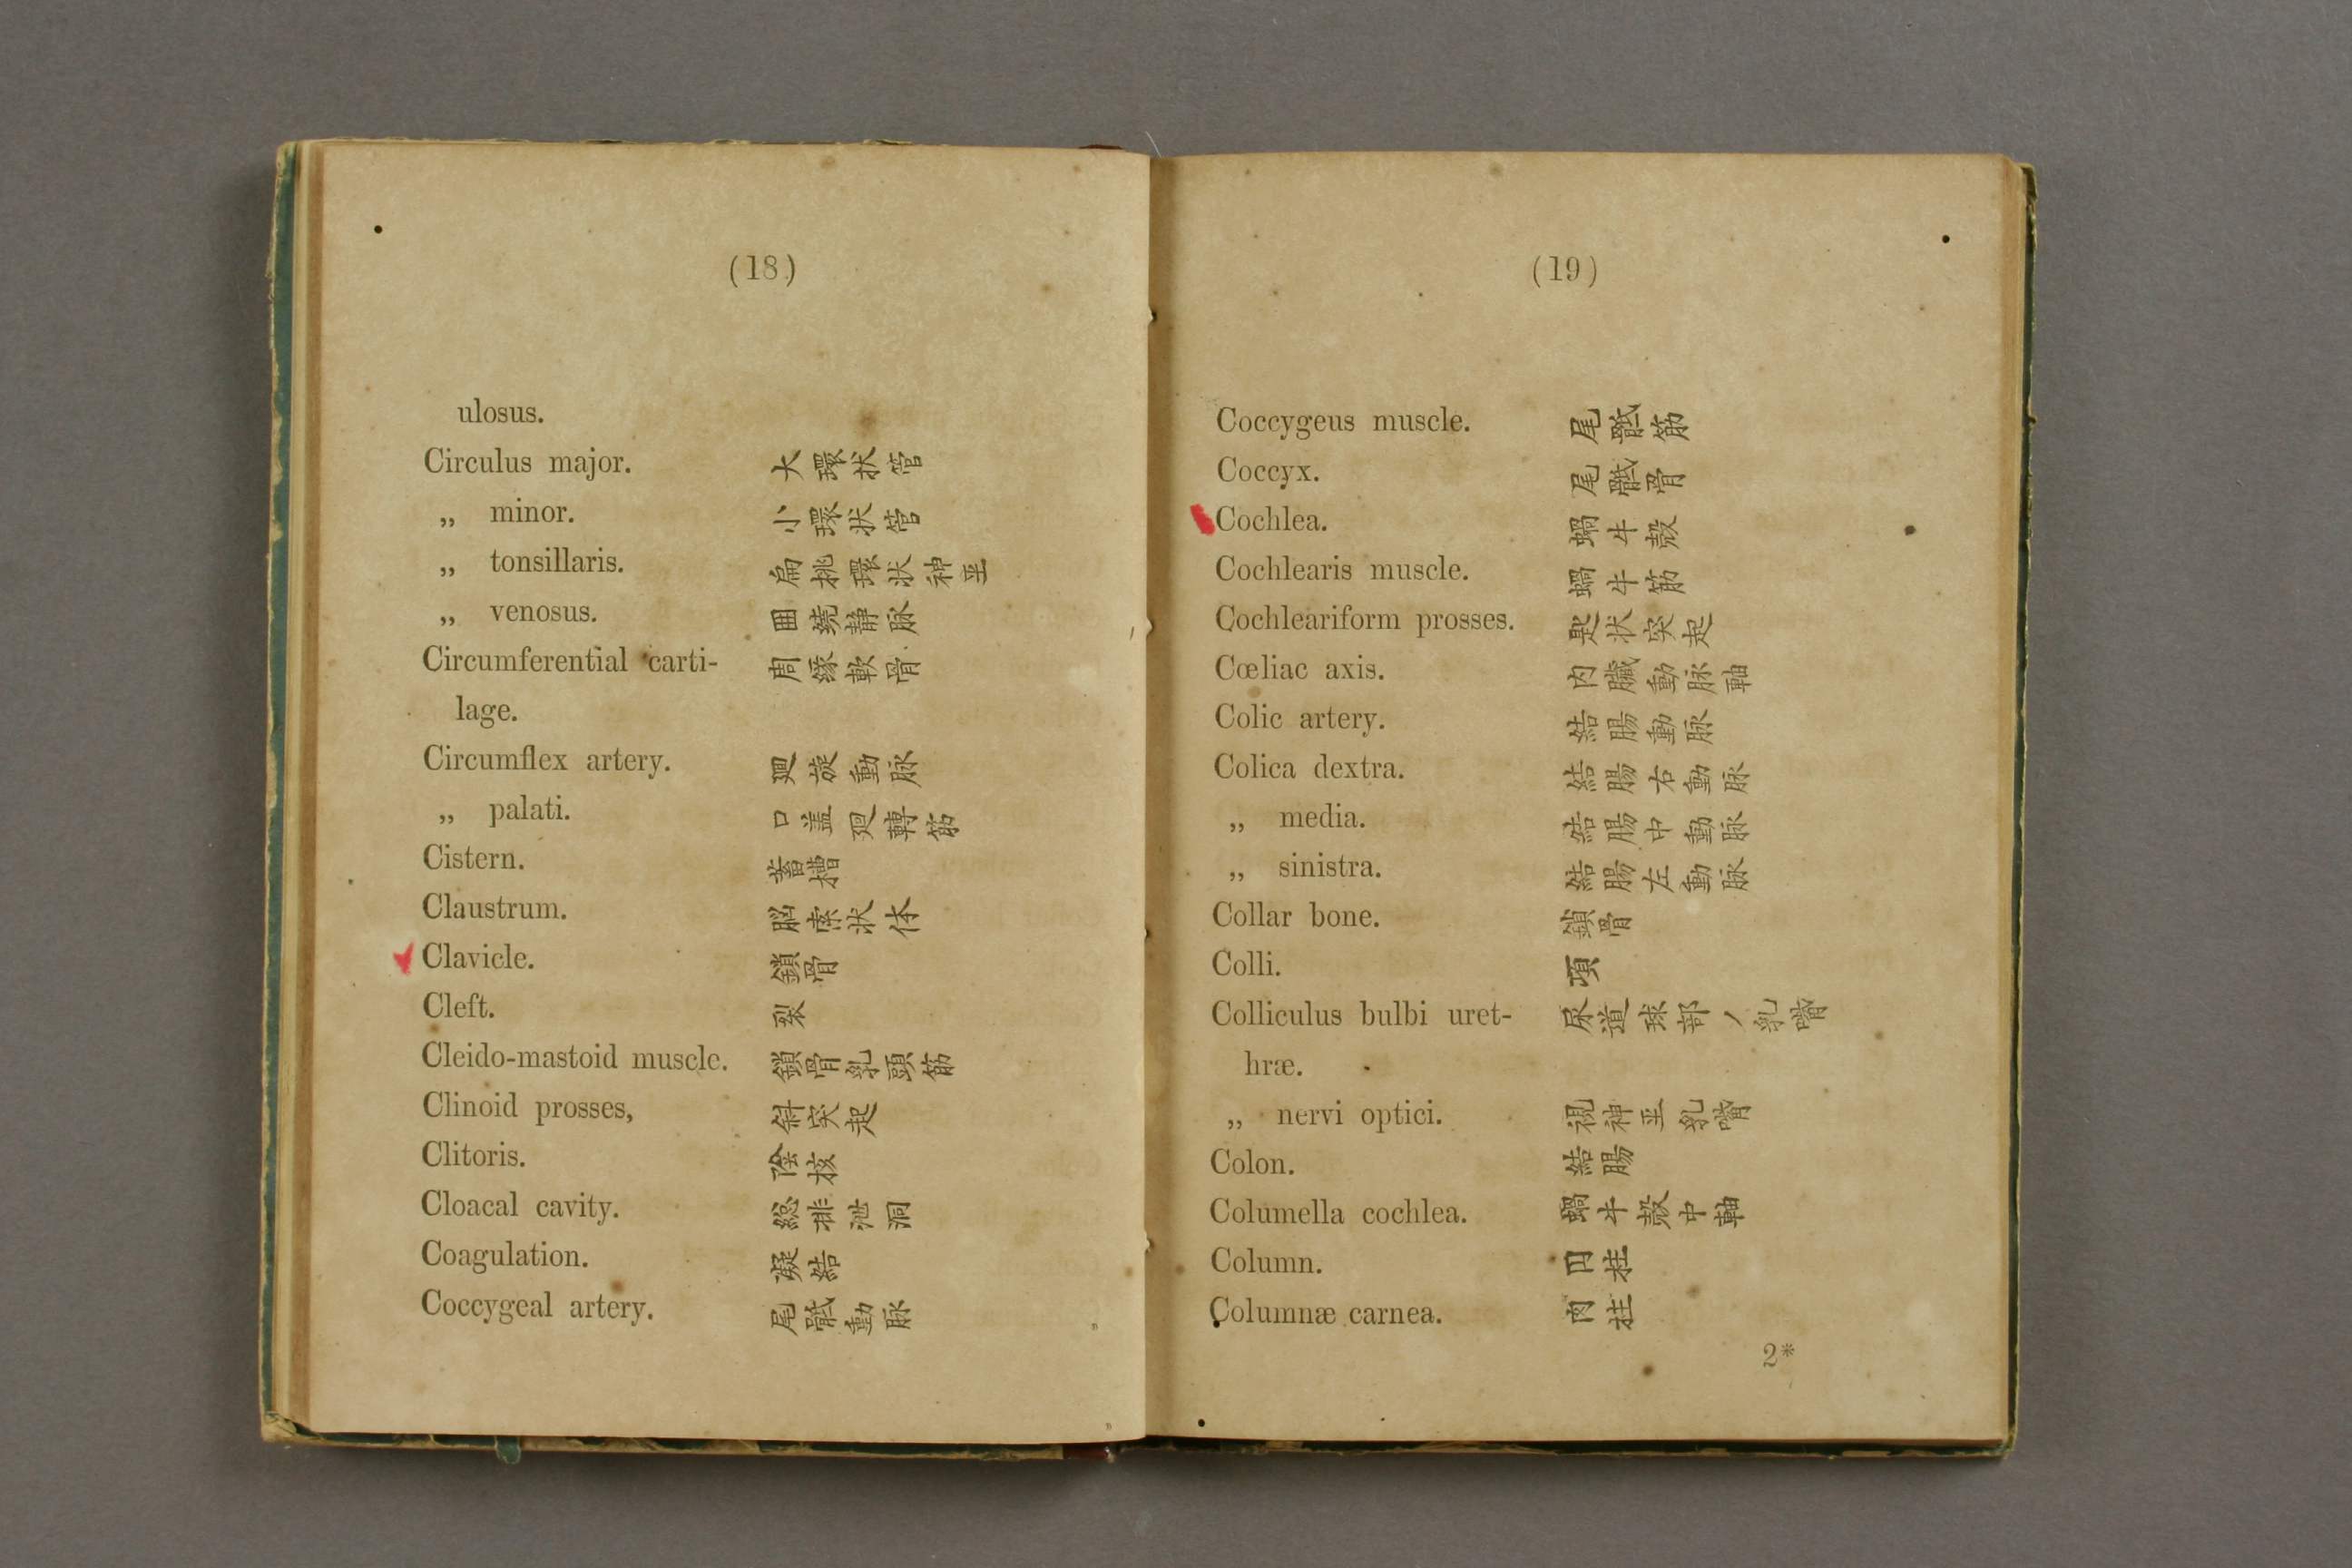 (18)
ulosus.
Circulus major. 大環状管
„ minor. 小環状管
„ tonsillaris. 扁挑環状神巠
„ venosus. 囲繞静脉
Circumferential carti- 周縁軟骨
lage.
Circumflex artery. 廻旋動脉
„ palati. 口盖廻轉筋
Cistern. 蓄槽
Claustrum. 脳索状体
Clavicle. 鎖骨
Cleft. 裂
Cleido-mastoid muscle. 鎖骨乳頭筋
Clinoid prosses, 斜突起
Clitoris. 陰核
Cloacal cavity. 総排泄洞
Coagulation. 凝結
Coccygeal artery. 尾骶動脉
(19)
Coccygeus muscle. 尾骶筋
Coccyx. 尾骶骨
Cochlea. 蝸牛殻
Cochlearis muscle. 蝸牛筋
Cochleariform prosses. 匙状突起
Cœliac axis. 内臓動脉軸
Colic artery. 結腸動脉
Colica dextra. 結腸右動脉
„ media. 結腸中動脉
„ sinistra. 結腸左動脉
Collar bone. 鎖骨
Colli. 項
Colliculus bulbi uret- 尿道球部ノ乳嘴
hræ.
„ nervi optici. 視神巠乳嘴
Colon. 結腸
Columella cochlea. 蝸牛殻中軸
Column. 円柱
Columnæ carnea. 肉柱
2*